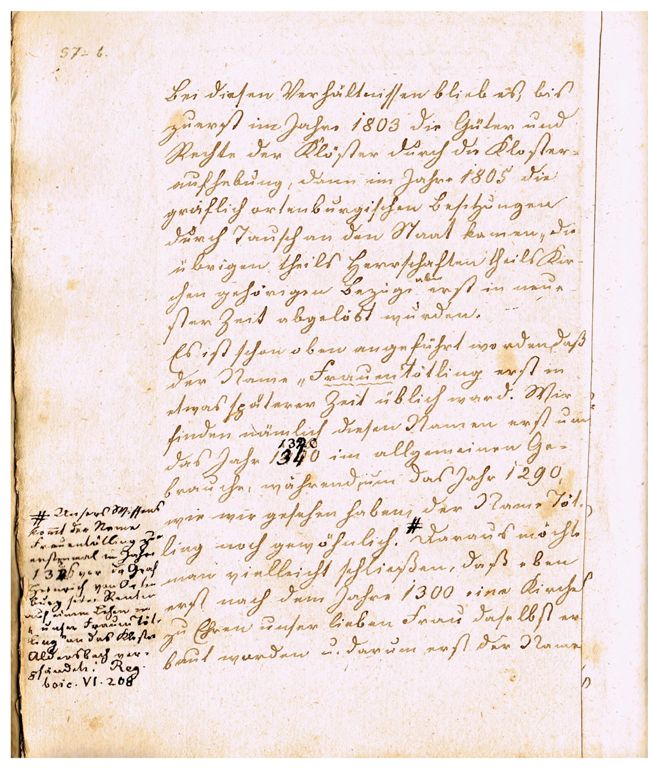 57 = 6.
Bei diesen Verhältnissen blieb es, bis
zuerst im Jahre 1803 die Güter und
Rechte der Klöster durch die Kloster-
aufhebung, dann im Jahre 1805 die
gräflich ortenburgischen Besitzungen
durch Tausch an den Staat kamen, die
übrigen theils Herrschaften theils Kir-
chen gehörigen Bezüge aber erst in neue-
ster Zeit abgelöst wurden.
Es ist schon oben angeführt worden, daß
der Name „Frauentötling erst in
etwas späterer Zeit üblich ward. Wir
finden nämlich diesen Namen erst um
das Jahr 1340 im allgemeinen Ge-
brauche, während um das Jahr 1290,
wie wir gesehen haben, der Name Töt-
ling noch gewöhnlich. # Daraus möchte
man vielleicht schließen, daß eben
erst nach dem Jahre 1300 eine Kirche
zu Ehren unser lieben Frau daselbst er-
baut worden u. darum erst der Name
# Unsers Wissens
komt der Name
Frauentölling zu
erstenmal im Jahre
vor, da Graf
Heinrich von Orten
burg seine Renten
auf einem Lehen in
„unser Frauentöt-
ling" an das Kloster
Aldersbach ver-
pfändete. Reg.
boic. VI. 208